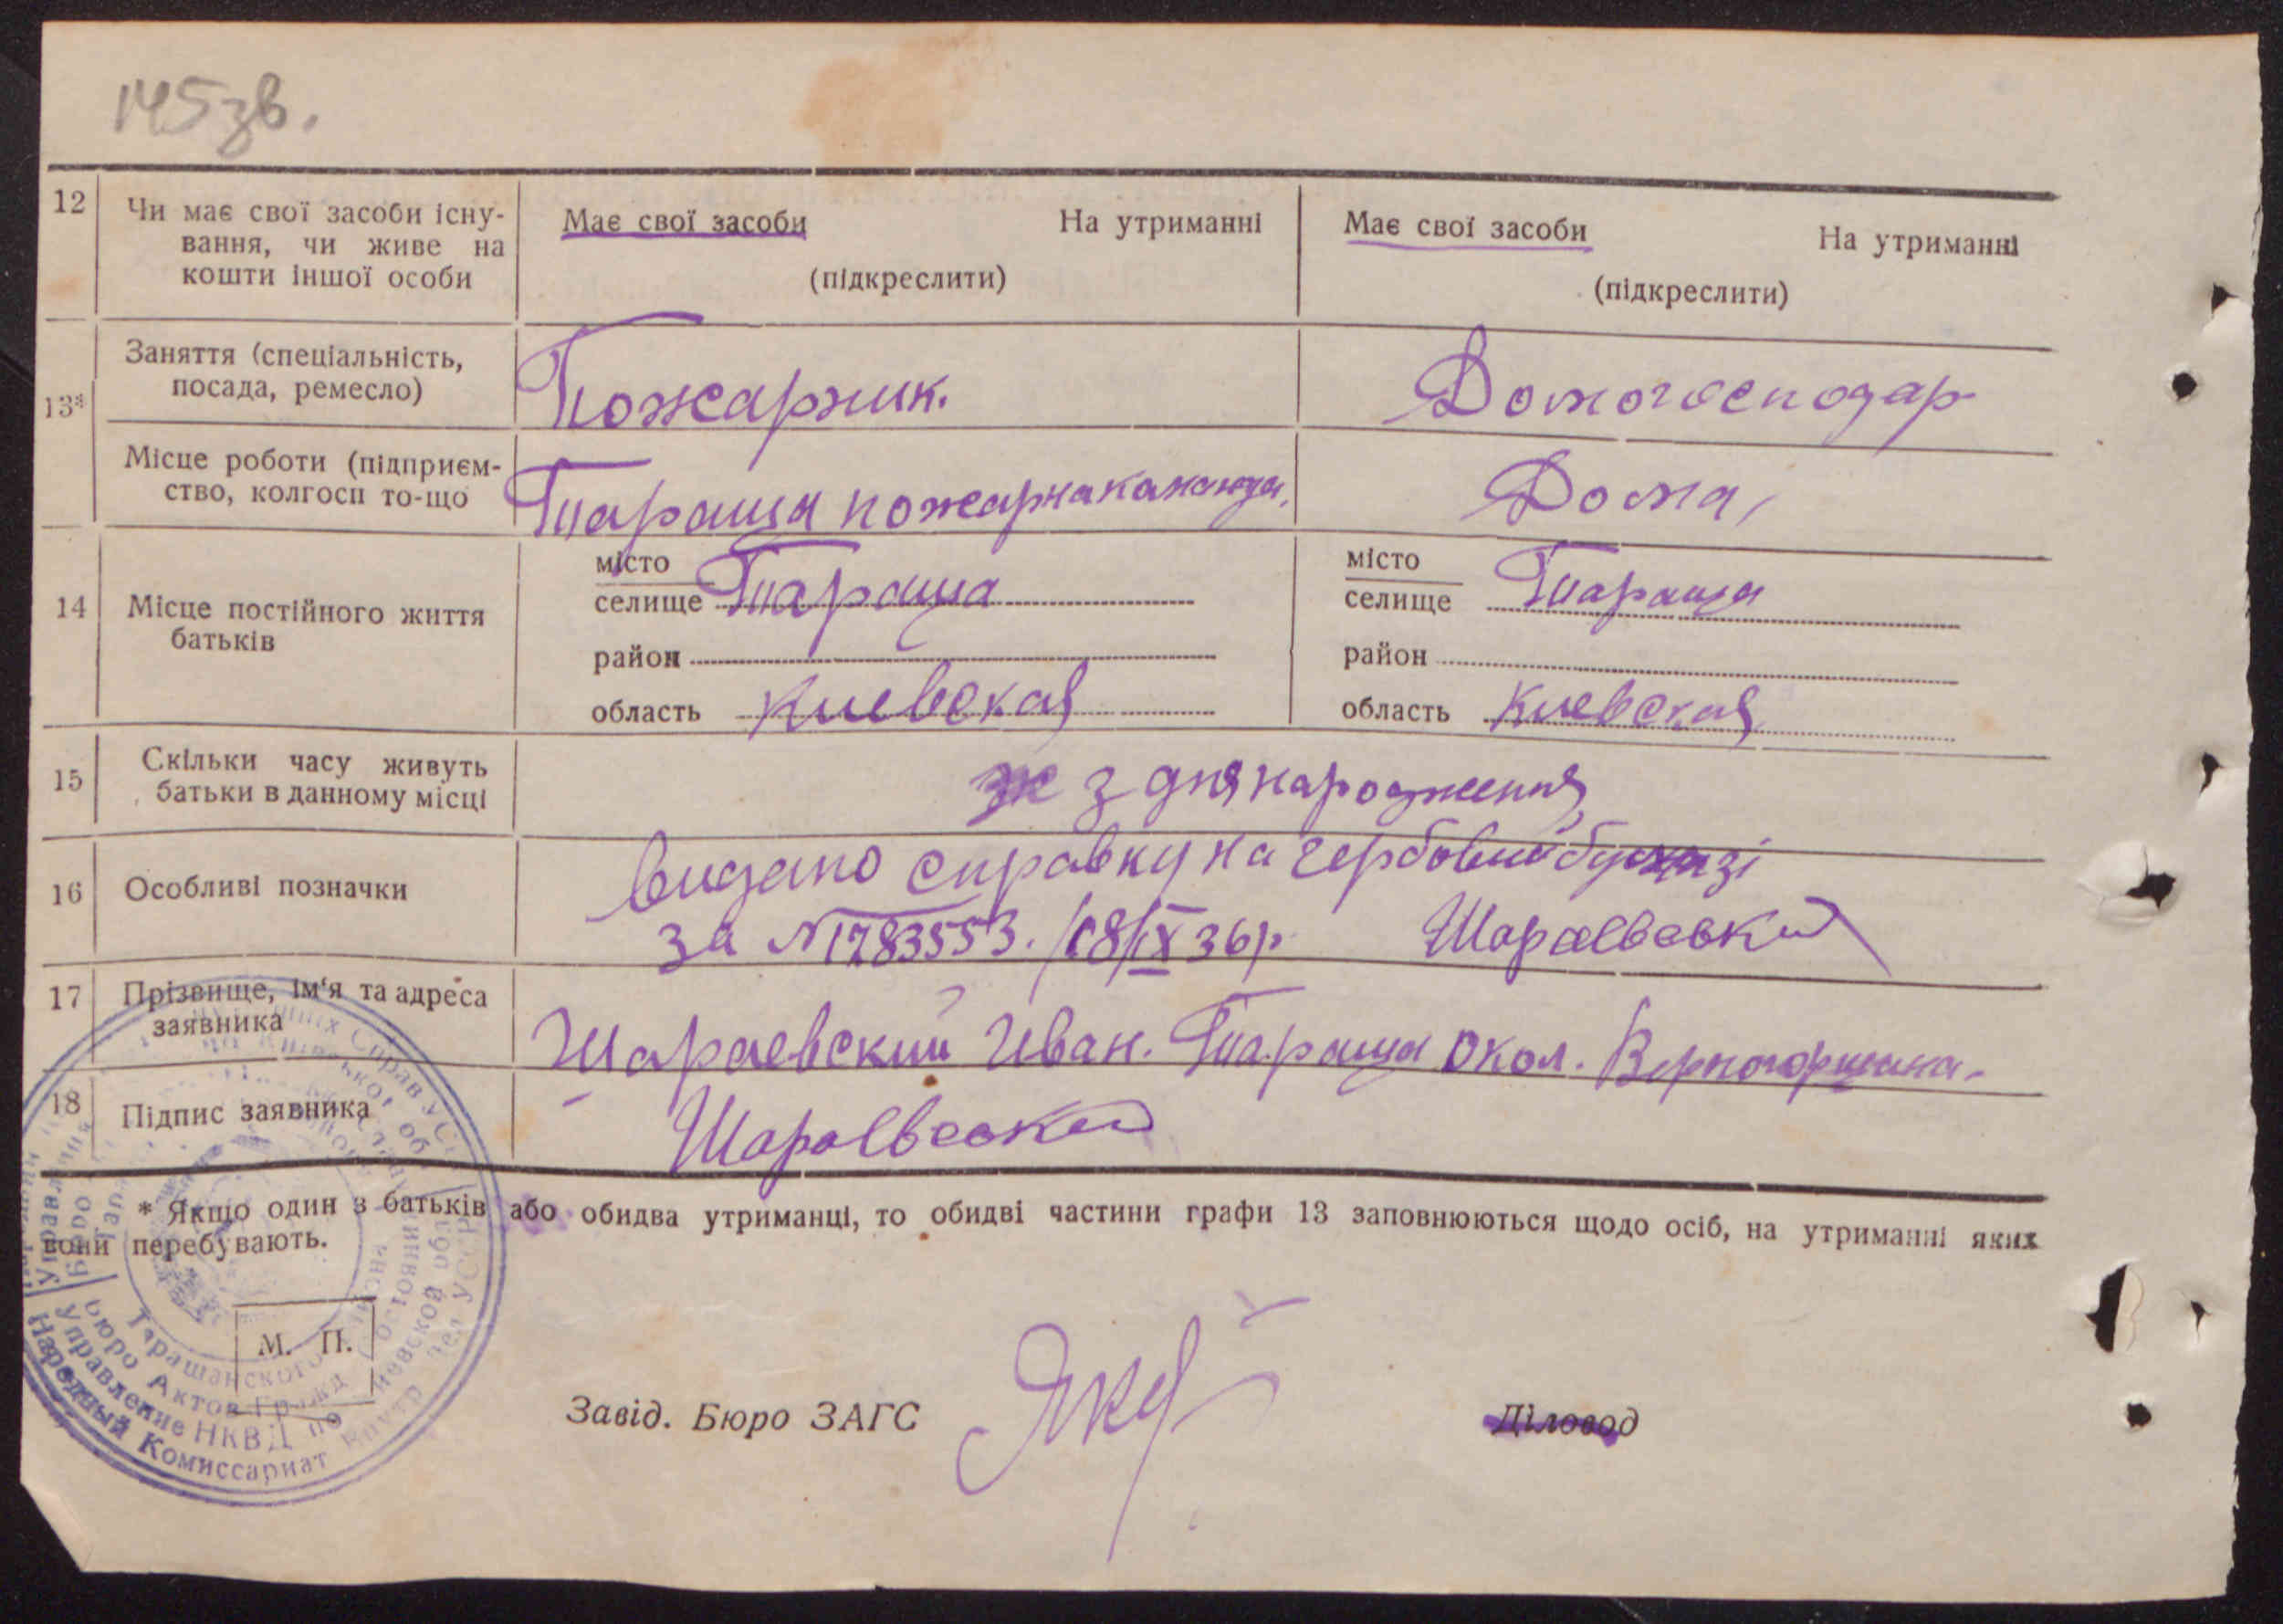 145зв.
12 Чи має свої засоби існу-
вання, чи живе на
кошти іншої особи
Має свої засоби На утриманні
(підкреслити)
Має свої засоби На утриманні
(підкреслити)
13*
Заняття (спеціальність,
посада, ремесло)
Пожарник.
Домогосподар
Місце роботи (підприєм-
ство, колгосп то-що
Тараща пожарна команда,
Дома,
14 Місце постійного життя
батьків
місто
селище Тараща
район
область Киевская
місто
селище Тараща
район
область Киевская
15 Скільки часу живуть
батьки в данному місці
з дня народження
16 Особливі позначки
Видано справку на гербовий бумазі
за №1783553. /18/IX 36р. Шараевский
17 Прізвище, ім'я та адреса
заявника
Шараевский Иван. Тараща окол.
18 Підпис заявника
Шараевский
* Якщо один з батьків або обидва утриманці, то обидві частини графи 13 заповнюються щодо осіб, на утриманні яких
вони перебувають.
М. П.
Завід. Бюро ЗАГС
Діловод
Таращанского
Бюро Актов Гражд
Управление НКВД по Киевской обл
Народный Комиссариат Внутр